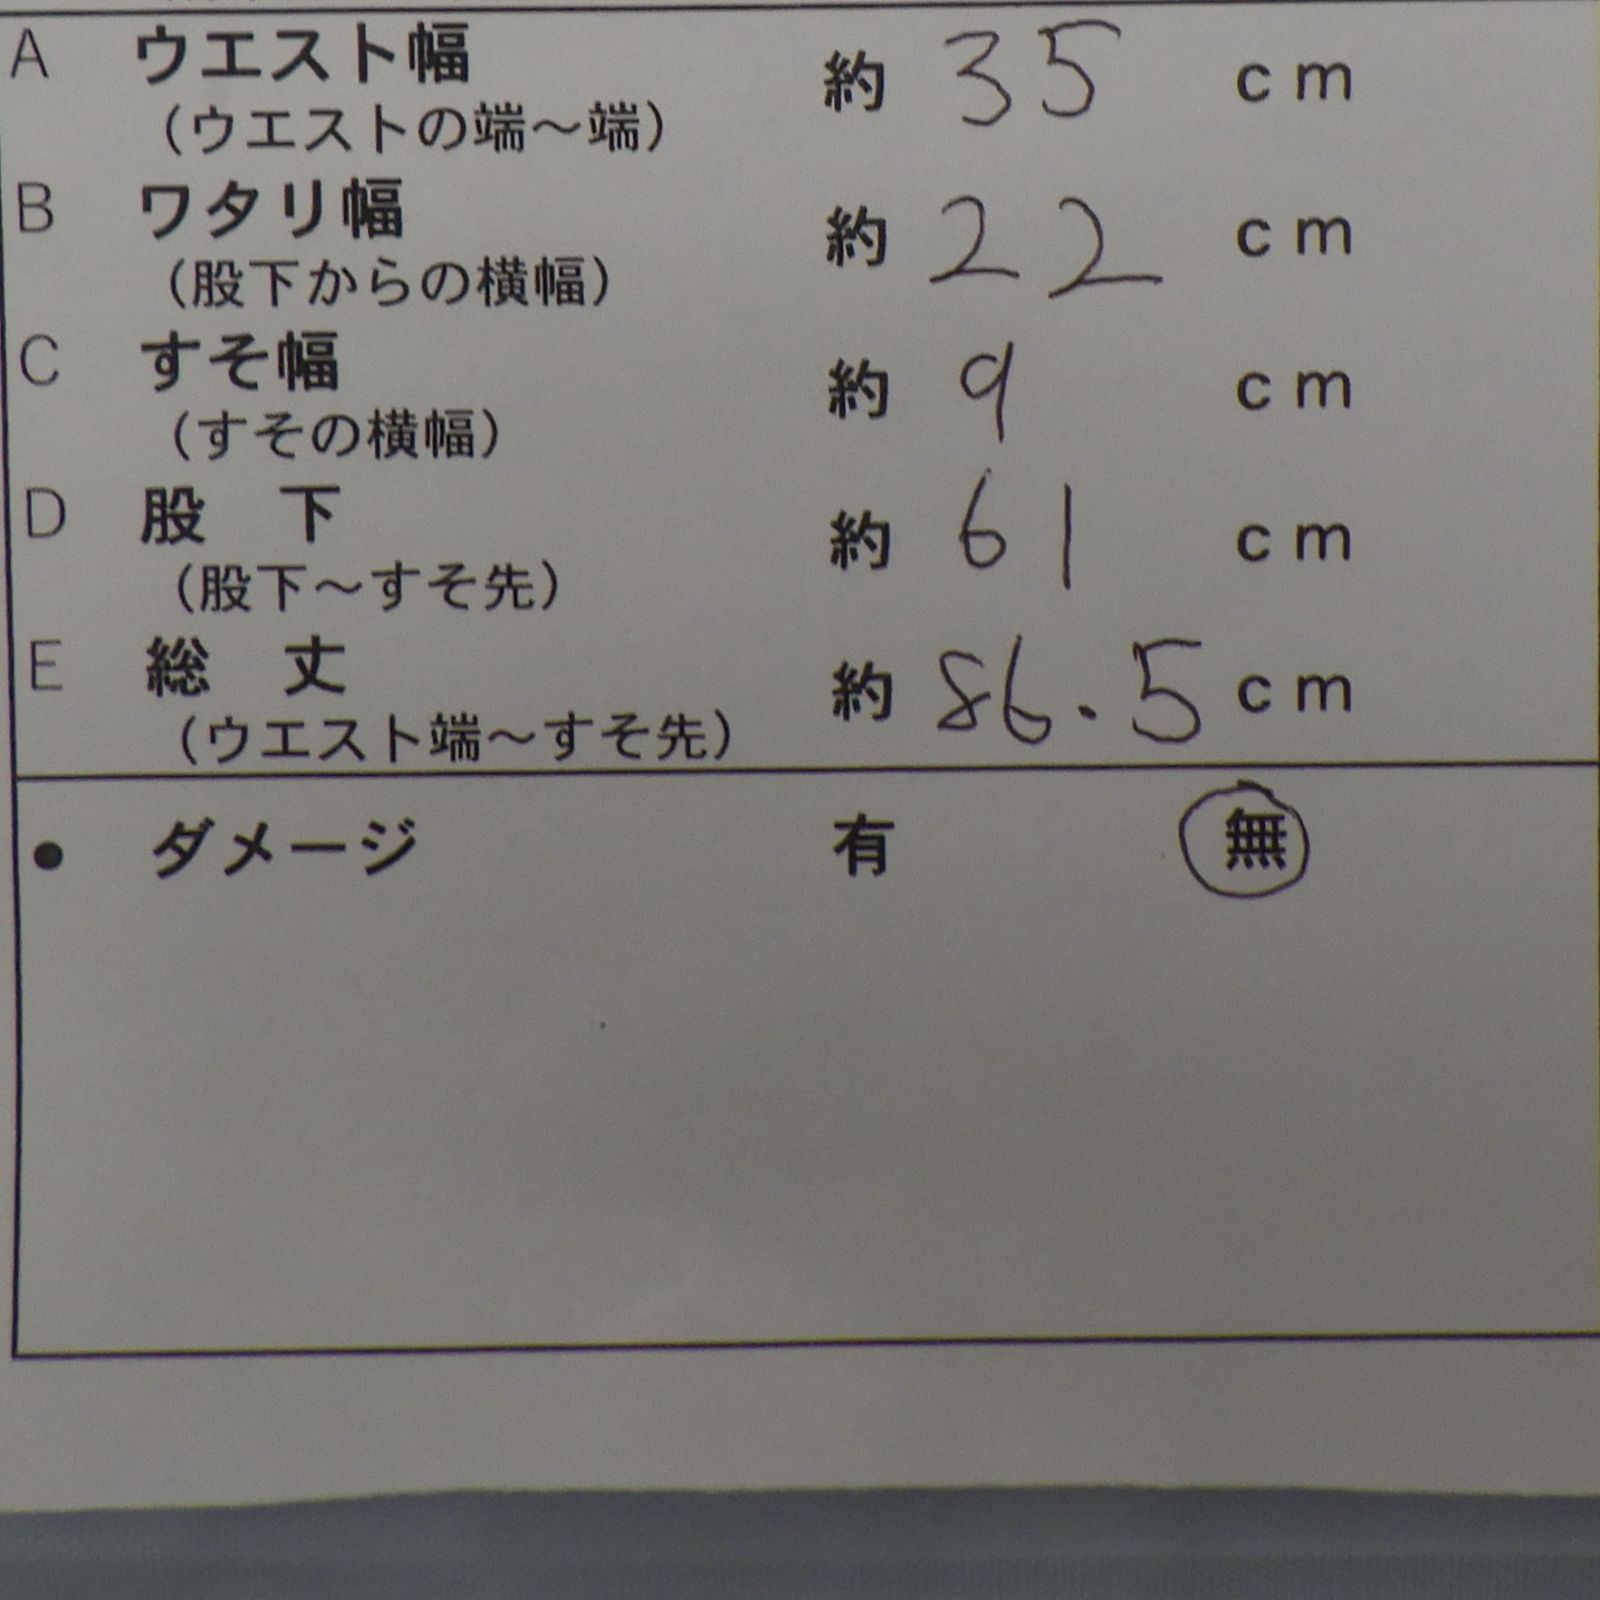 A ウエスト幅 約 35 cm
(ウエストの端~端)
B ワタリ幅 約 22 cm
(股下からの横幅)
C すそ幅 約 9 cm
(すその横幅)
D 股 下 約 61 cm
(股下~すそ先)
E 総 丈 約 86.5 cm
(ウエスト端~すそ先)
● ダメージ 有 無